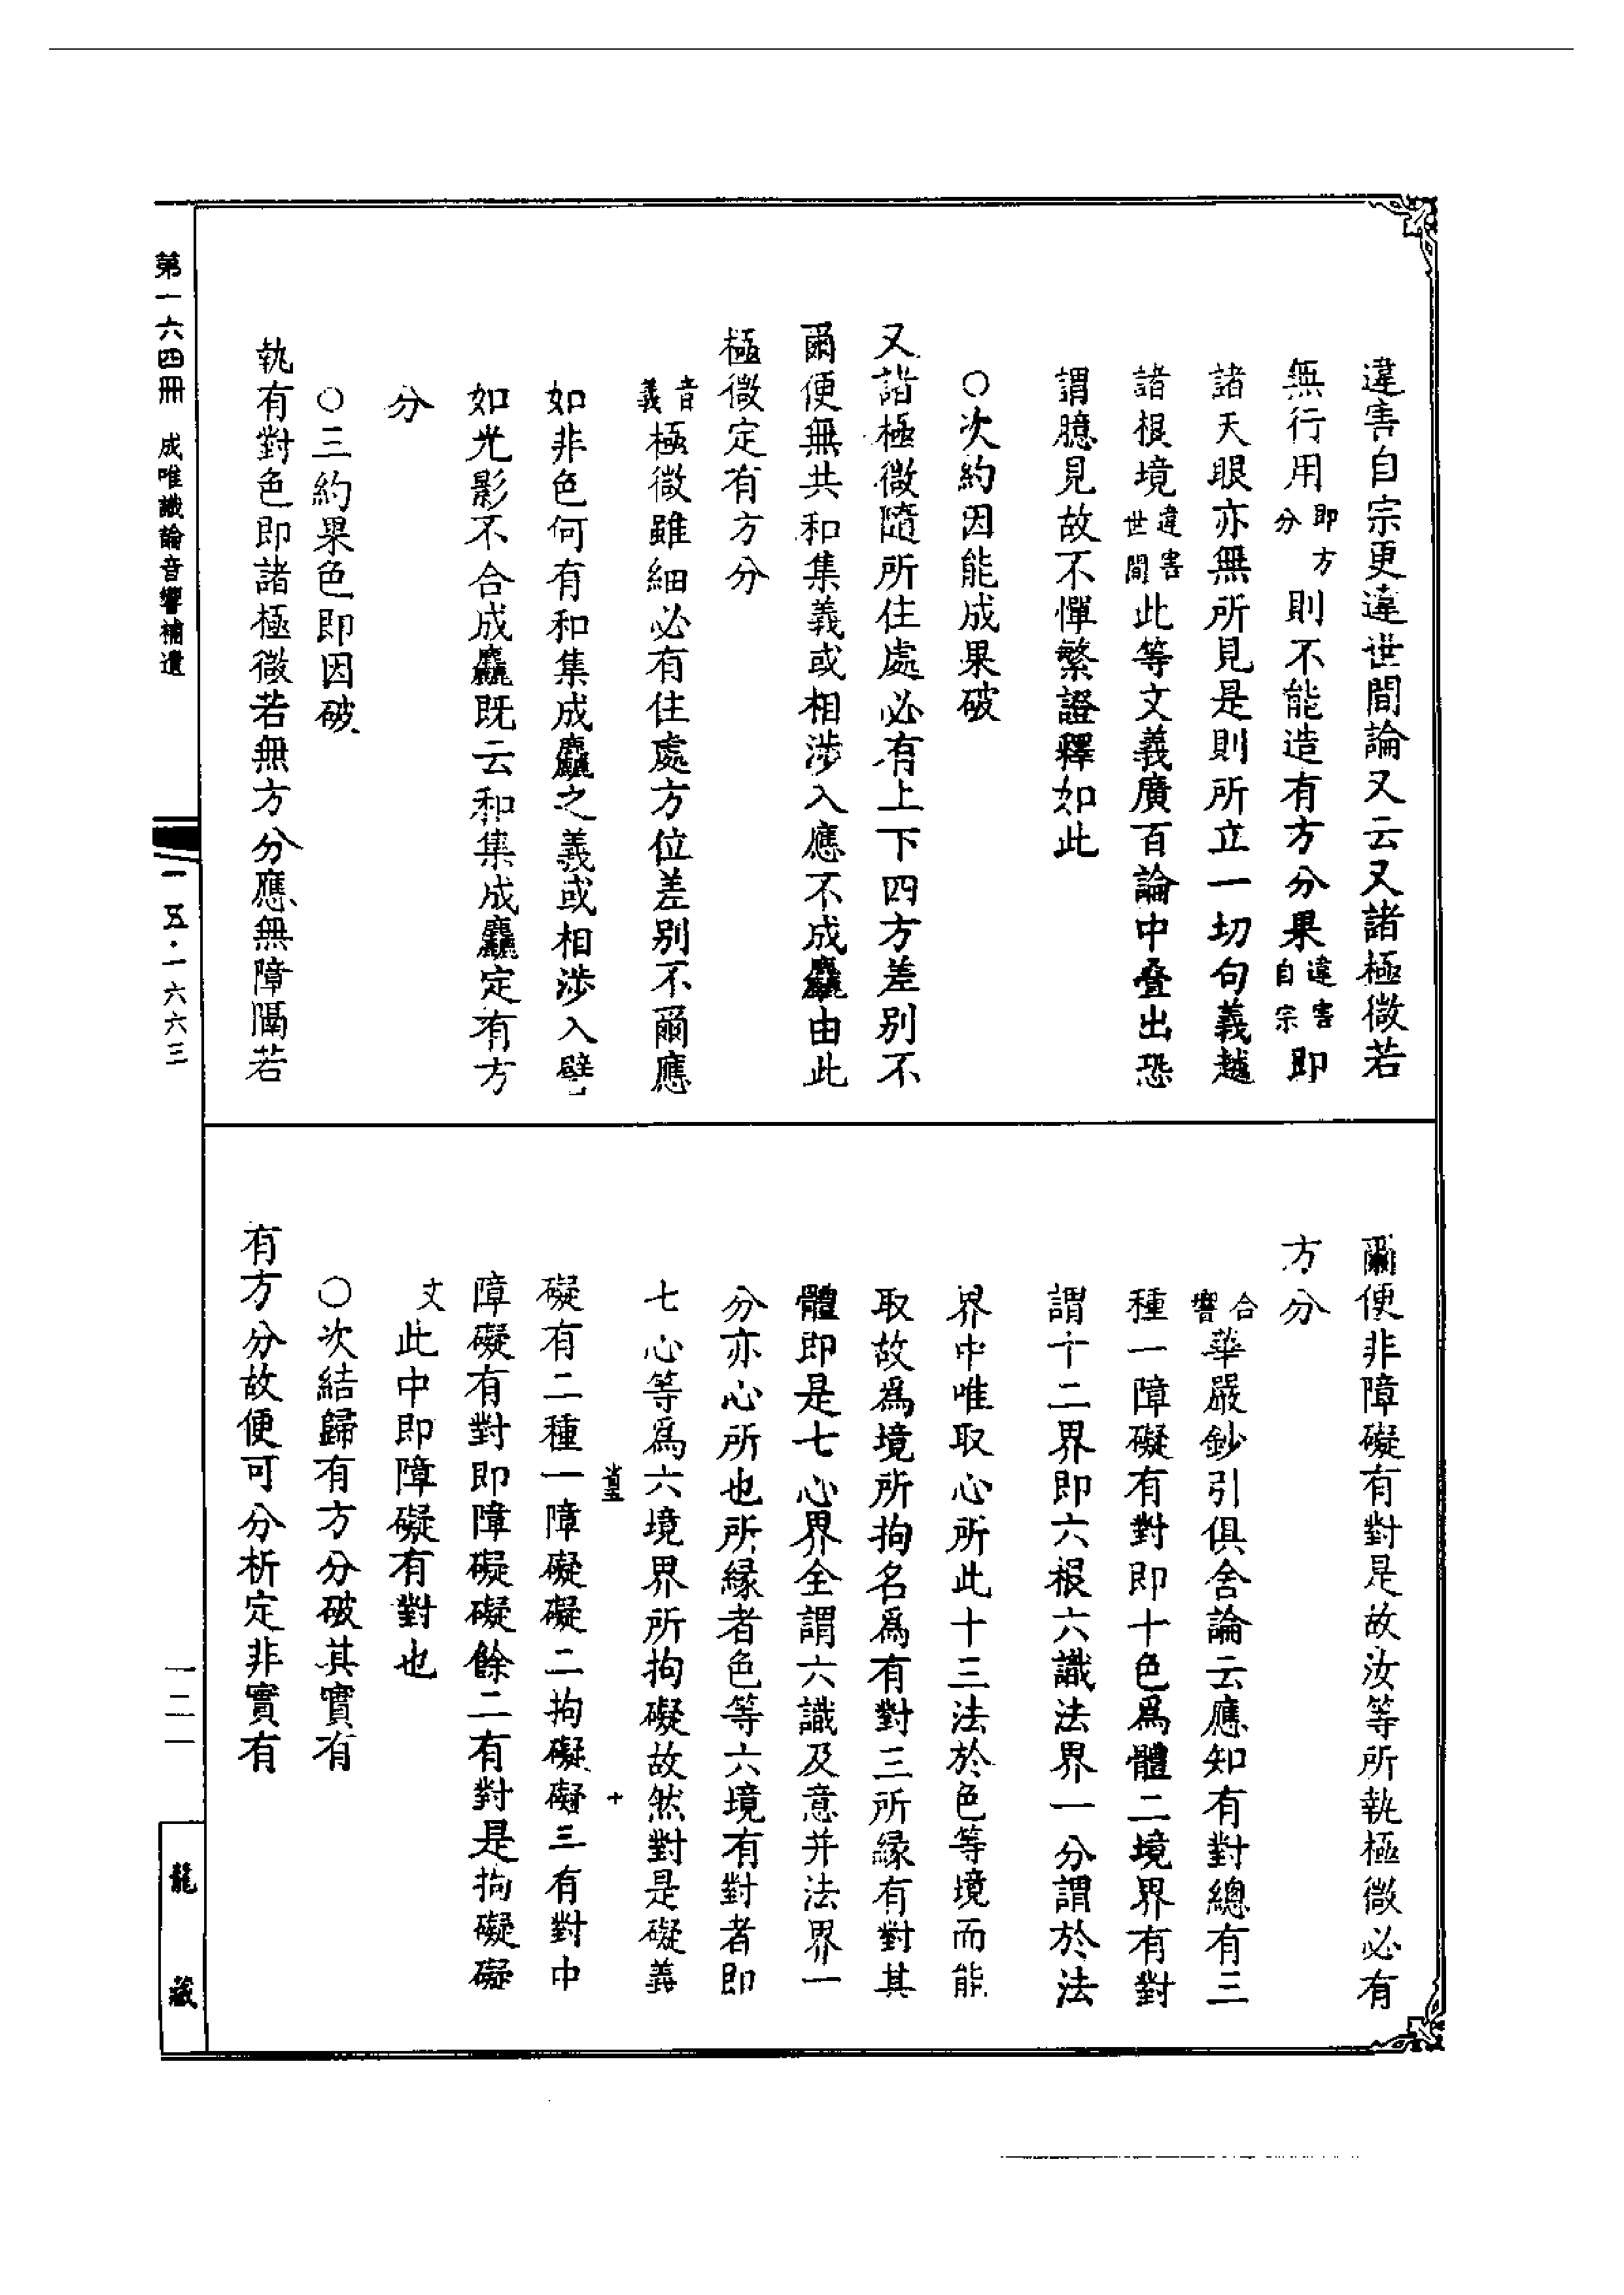 違害自宗更違世間論又云又諸極微若
無行用即方分則不能造有方分果違害自宗即
諸天眼亦無所見是則所立一切句義越
諸根境違害世間此等文義廣百論中疊出恐
謂臆見故不憚繁證釋如此
○次約因能成果破
又諸極微隨所住處必有上下四方差別不
爾便無共和集義或相涉入應不成麤由此
極微定有方分
音義極微雖細必有住處方位差別不爾應
如非色何有和集成麤之義或相涉入譬
如光影不合成麤既云和集成麤定有方
分
○三約果色即因破
執有對色即諸極微若無方分應無障隔若
爾便非障礙有對是故汝等所執極微必有
方分
合響華嚴鈔引俱舍論云應知有對總有三
種一障礙有對即十色為體二境界有對
謂十二界即六根六識法界一分謂於法
界中唯取心所此十三法於色等境而能
取故為境所拘名為有對三所緣有對其
體即是七心界全謂六識及意并法界一
分亦心所也所緣者色等六境有對者即
七心等為六境界所拘礙故然對是礙義
礙有二種一障礙礙二拘礙礙三有對中
障礙有對即障礙礙餘二有對是拘礙礙
文此中即障礙有對也
○次結歸有方分破其實有
有方分故便可分析定非實有
第一六四冊 成唯識論音響補遺
一五·一六六三
一二一
龍藏